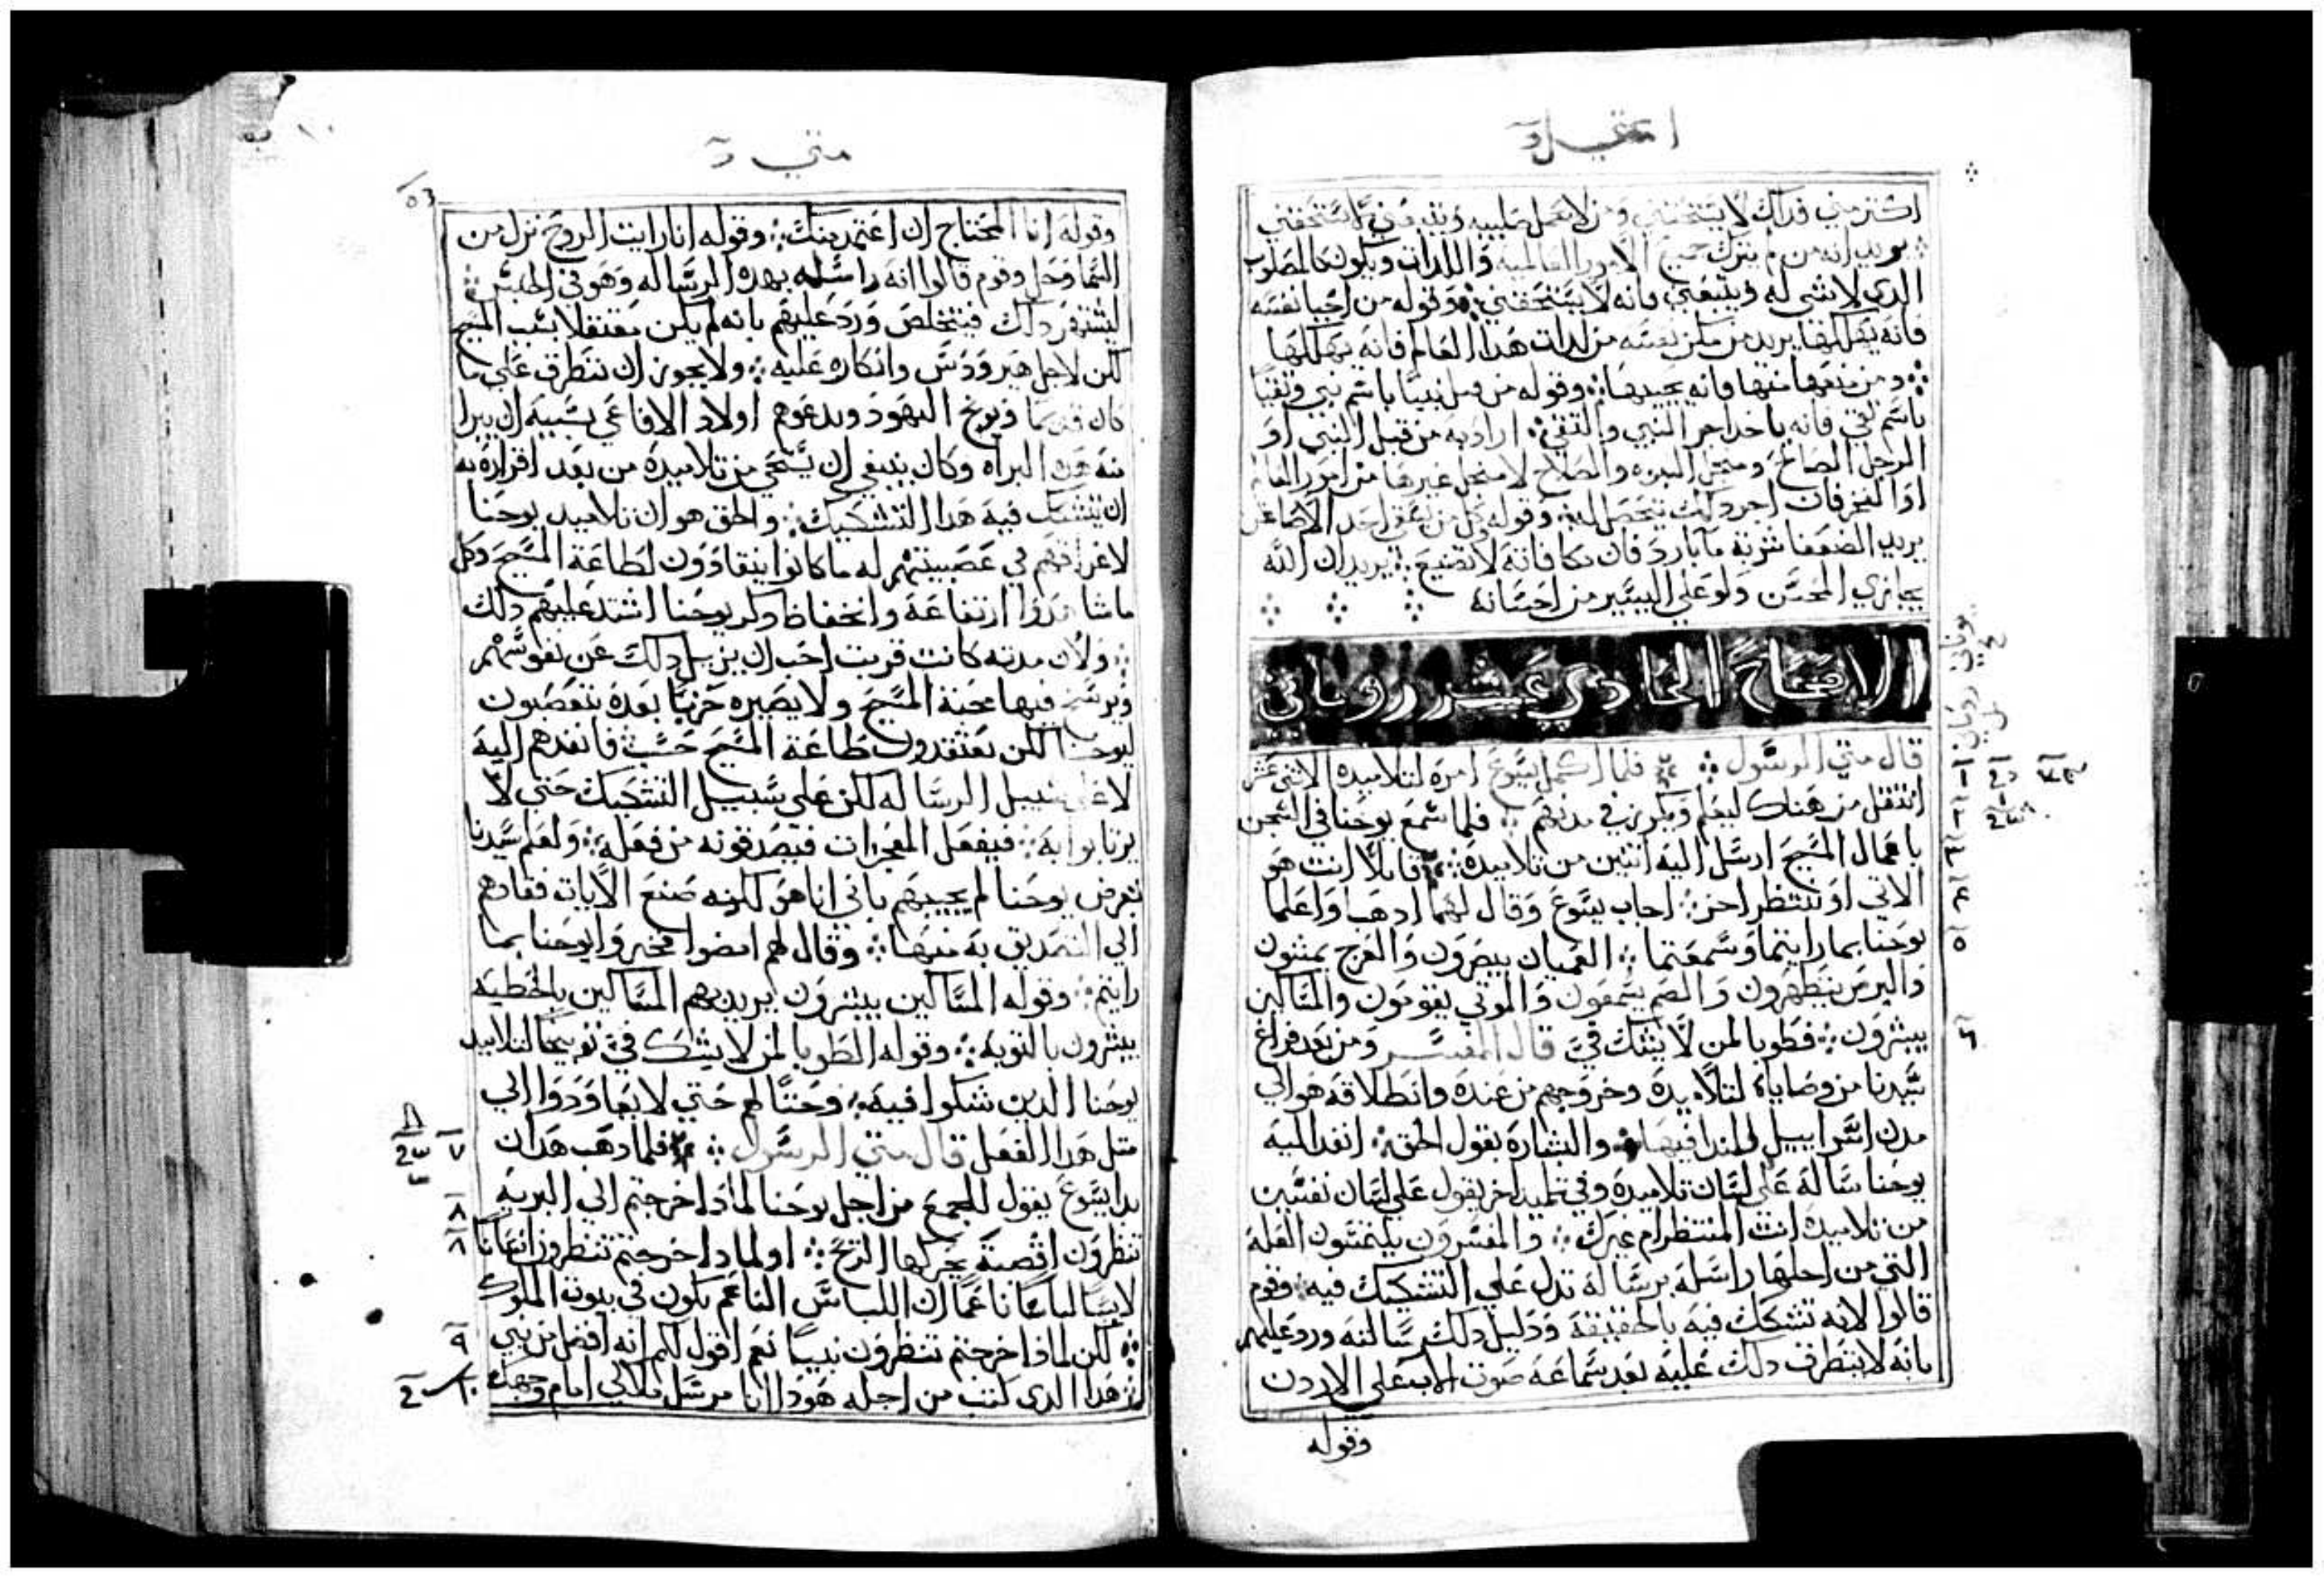 اكتر مني فداك لا يستحقني ومن لا يحمل صليبه ويتبعني لا يستحقني
يريد انه من لم يترك جميع الامور العالمية واللدات ويكون كالمصلوب
الدي لا شي له ويتبعني فانه لا يستحقني وقوله من احيا نفسه
فانه يهلكها يريد من مكن نفسه من لدات هدا العالم فانه يهلكها
ومن منعها منها فانه يحييها وقوله من قبل نبيا باسم نبي وتقيا
باسم تقي فانه ياخد اجر النبي والتقي اراد به من قبل النبي او
الرجل الصالح ومن اجل النبوه والصلاح لا من اجل غيرها من امور العالم
او الفخر فان اجر دلك يتحصل له وقوله كل من يسقي احد الاصاغر
يريد الضعفا شربة ما بارد فان مكافاته لا تضيع يريد ان الله
يجازي المحسن ولو علي اليسير من احسانه
الاصحاح الحادي عشر روماني
قال متي الرسول فلما اكمل يسوع امره لتلاميده الاثني عشر
انتقل من هناك ليعلم ويكرز في مدنهم فلما سمع يوحنا في السجن
باعمال المسيح ارسل اليه اتنين من تلاميده قايلا انت هو
الاتي او ننتظر اخر اجاب يسوع وقال لهما ادهبا واعلما
يوحنا بما رايتما وسمعتما العميان يبصرون والعرج يمشون
والبرص يتطهرون والصم يسمعون والموتي يقومون والمساكين
يبشرون فطوبا لمن لا يشك في قال المفسر ومن بعد فراغ
سيدنا من وصاياه لتلاميده وخروجهم من عنده وانطلاقه هو الي
مدن اسراييل لينادا فيها والبشارة بقول الحق انفد اليه
يوحنا رسالة علي لسان تلاميده وفي تلميد اخر يقول علي لسان نفسين
من تلاميده انت المنتظر ام غيرك والمفسرون يلتمسون العلة
التي من اجلها راسله برسالة تدل علي التشكيك فيه فقوم
قالوا لانه تشكك فيه بالحقيقة ودليل دلك رسالته ورد عليهم
بانه لا يتطرق دلك عليه بعد سماعه صوت الاب علي الاردن
وقوله
متي
وقوله انا المحتاج ان اعتمد منك وقوله انا رايت الروح نزل من
السما وحل وقوم قالوا انه راسله بهده الرساله وهو في الحبس
ليشتهر دلك فيتخلص ورد عليهم بانه لم يكن معتقلا بسبب المسيح
لكن لاجل هيرودس وانكاره عليه ولا يجوز ان نتطرق علي ما
كان قديما ويوبخ اليهود ويدعوهم اولاد الافاعي بسببه ان يبرا
منه هده البراه وكان ينبغي ان يستحي من تلاميده من بعد اقراره به
ان يتشكك فيه هدا التشكيك والحق هو ان تلاميد يوحنا
لاغراقهم في عصبيتهم له ما كانوا ينقادون لطاعة المسيح وكل
ما شاهدوا ارتفاعه وانخفاظ دكر يوحنا اشتد عليهم دلك
ولان مدته كانت قربت احب ان يزيل دلك عن نفوسهم
ويرسخ فيها محبة المسيح ولا يصيره حزبا بعده يتعصبون
ليوحنا لكن يعتقدون طاعة المسيح حسب فانفدهم اليه
لا علي سبيل الرساله لكن علي سبيل التشكيك حتي لا
يرتابوا به فيفعل المعجزات فيصدقونه من فعله ولعلم سيدنا
بغرض يوحنا لم يجيبهم باني انا هو لكنه صنع الايات فقادهم
الي التصديق به منها وقال لهم امضوا فخبروا يوحنا بما
رايتم وقوله المساكين يبشرون يريد بهم المساكين بالخطيه
يبشرون بالتوبة وقوله الطوبا لمن لا يشك في توبيخا لتلاميد
يوحنا الدين شكوا فيه وحتا لهم حتي لا يعاودوا الي
متل هدا الفعل قال متي الرسول فلما دهب هدان
بدا يسوع يقول للجمع من اجل يوحنا لمادا خرجتم الي البريه
تنظرون اقصبة يحركها الريح او لمادا خرجتم تنظرون انسانا
لابسا لباسا ناعما ان اللباس الناعم يكون في بيوت الملوك
لكن لمادا خرجتم تنظرون نبيا نعم اقول لكم انه افضل من نبي
هدا الدي كتب من اجله هودا انا مرسل ملاكي امام وجهك